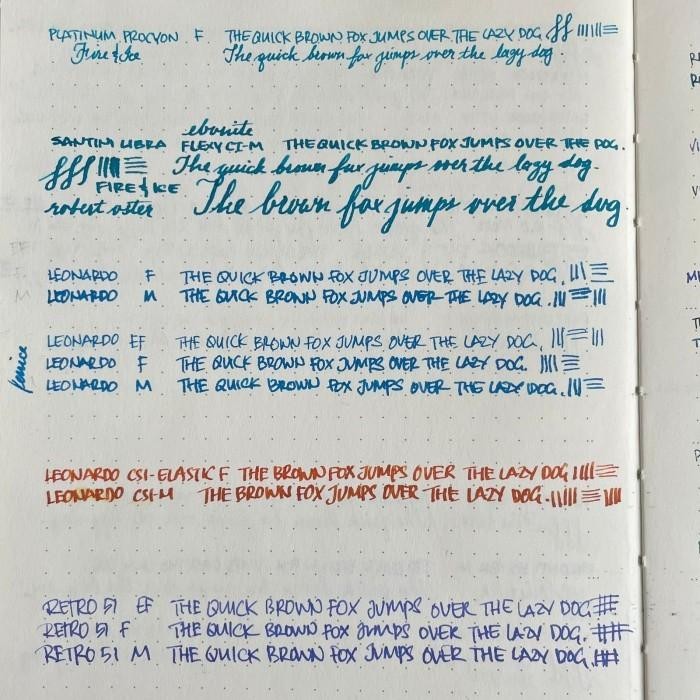 PLATINUM PROCYON F THE QUICK BROWN FOX JUMPS OVER THE LAZY DOG
Fire & Ice The quick brown fox jumps over the lazy dog.
ebonite
SANTINI LIBRA FLEXY CI-M THE QUICK BROWN FOX JUMPS OVER THE DOG.
The quick brown fox jumps over the lazy dog.
FIRE & ICE
robert oster The brown fox jumps over the dog.
LEONARDO F THE QUICK BROWN FOX JUMPS OVER THE LAZY DOG.
LEONARDO M THE QUICK BROWN FOX JUMPS OVER THE LAZY DOG.
LEONARDO EF THE QUICK BROWN FOX JUMPS OVER THE LAZY DOG.
LEONARDO F THE QUICK BROWN FOX JUMPS OVER THE LAZY DOG.
LEONARDO M THE QUICK BROWN FOX JUMPS OVER THE LAZY DOG.
LEONARDO CSI-ELASTIC F THE BROWN FOX JUMPS OVER THE LAZY DOG
LEONARDO CSI-M THE BROWN FOX JUMPS OVER THE LAZY DOG.
RETRO 51 EF THE QUICK BROWN FOX JUMPS OVER THE LAZY DOG
RETRO 51 F THE QUICK BROWN FOX JUMPS OVER THE LAZY DOG.
RETRO 51 M THE QUICK BROWN FOX JUMPS OVER THE LAZY DOG.